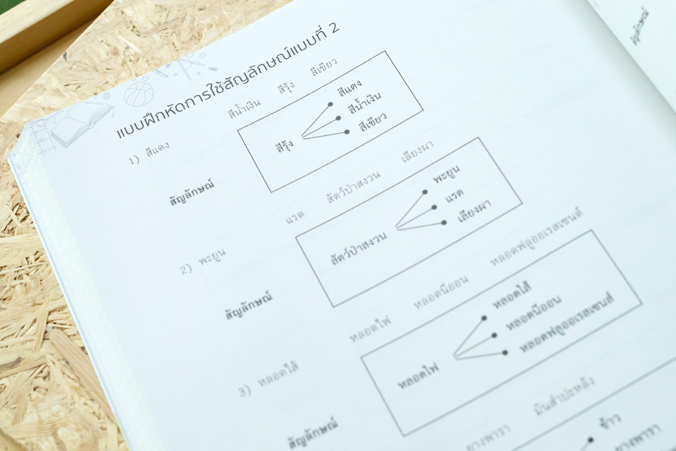 แบบฝึกหัดการใช้สัญลักษณ์แบบที่ 2
1) สีแดง สีน้ำเงิน สีรุ้ง สีเขียว
สัญลักษณ์
สีรุ้ง
สีแดง
สีน้ำเงิน
สีเขียว
2) พะยูน แรด สัตว์ป่าสงวน เลียงผา
สัญลักษณ์
สัตว์ป่าสงวน
พะยูน
แรด
เลียงผา
3) หลอดไส้ หลอดไฟ หลอดนีออน หลอดฟลูออเรสเซนต์
สัญลักษณ์
หลอดไฟ
หลอดไส้
หลอดนีออน
หลอดฟลูออเรสเซนส์
ยางพารา มันสำปะหลัง
ข้าว
ยางพารา
สัญลักษณ์